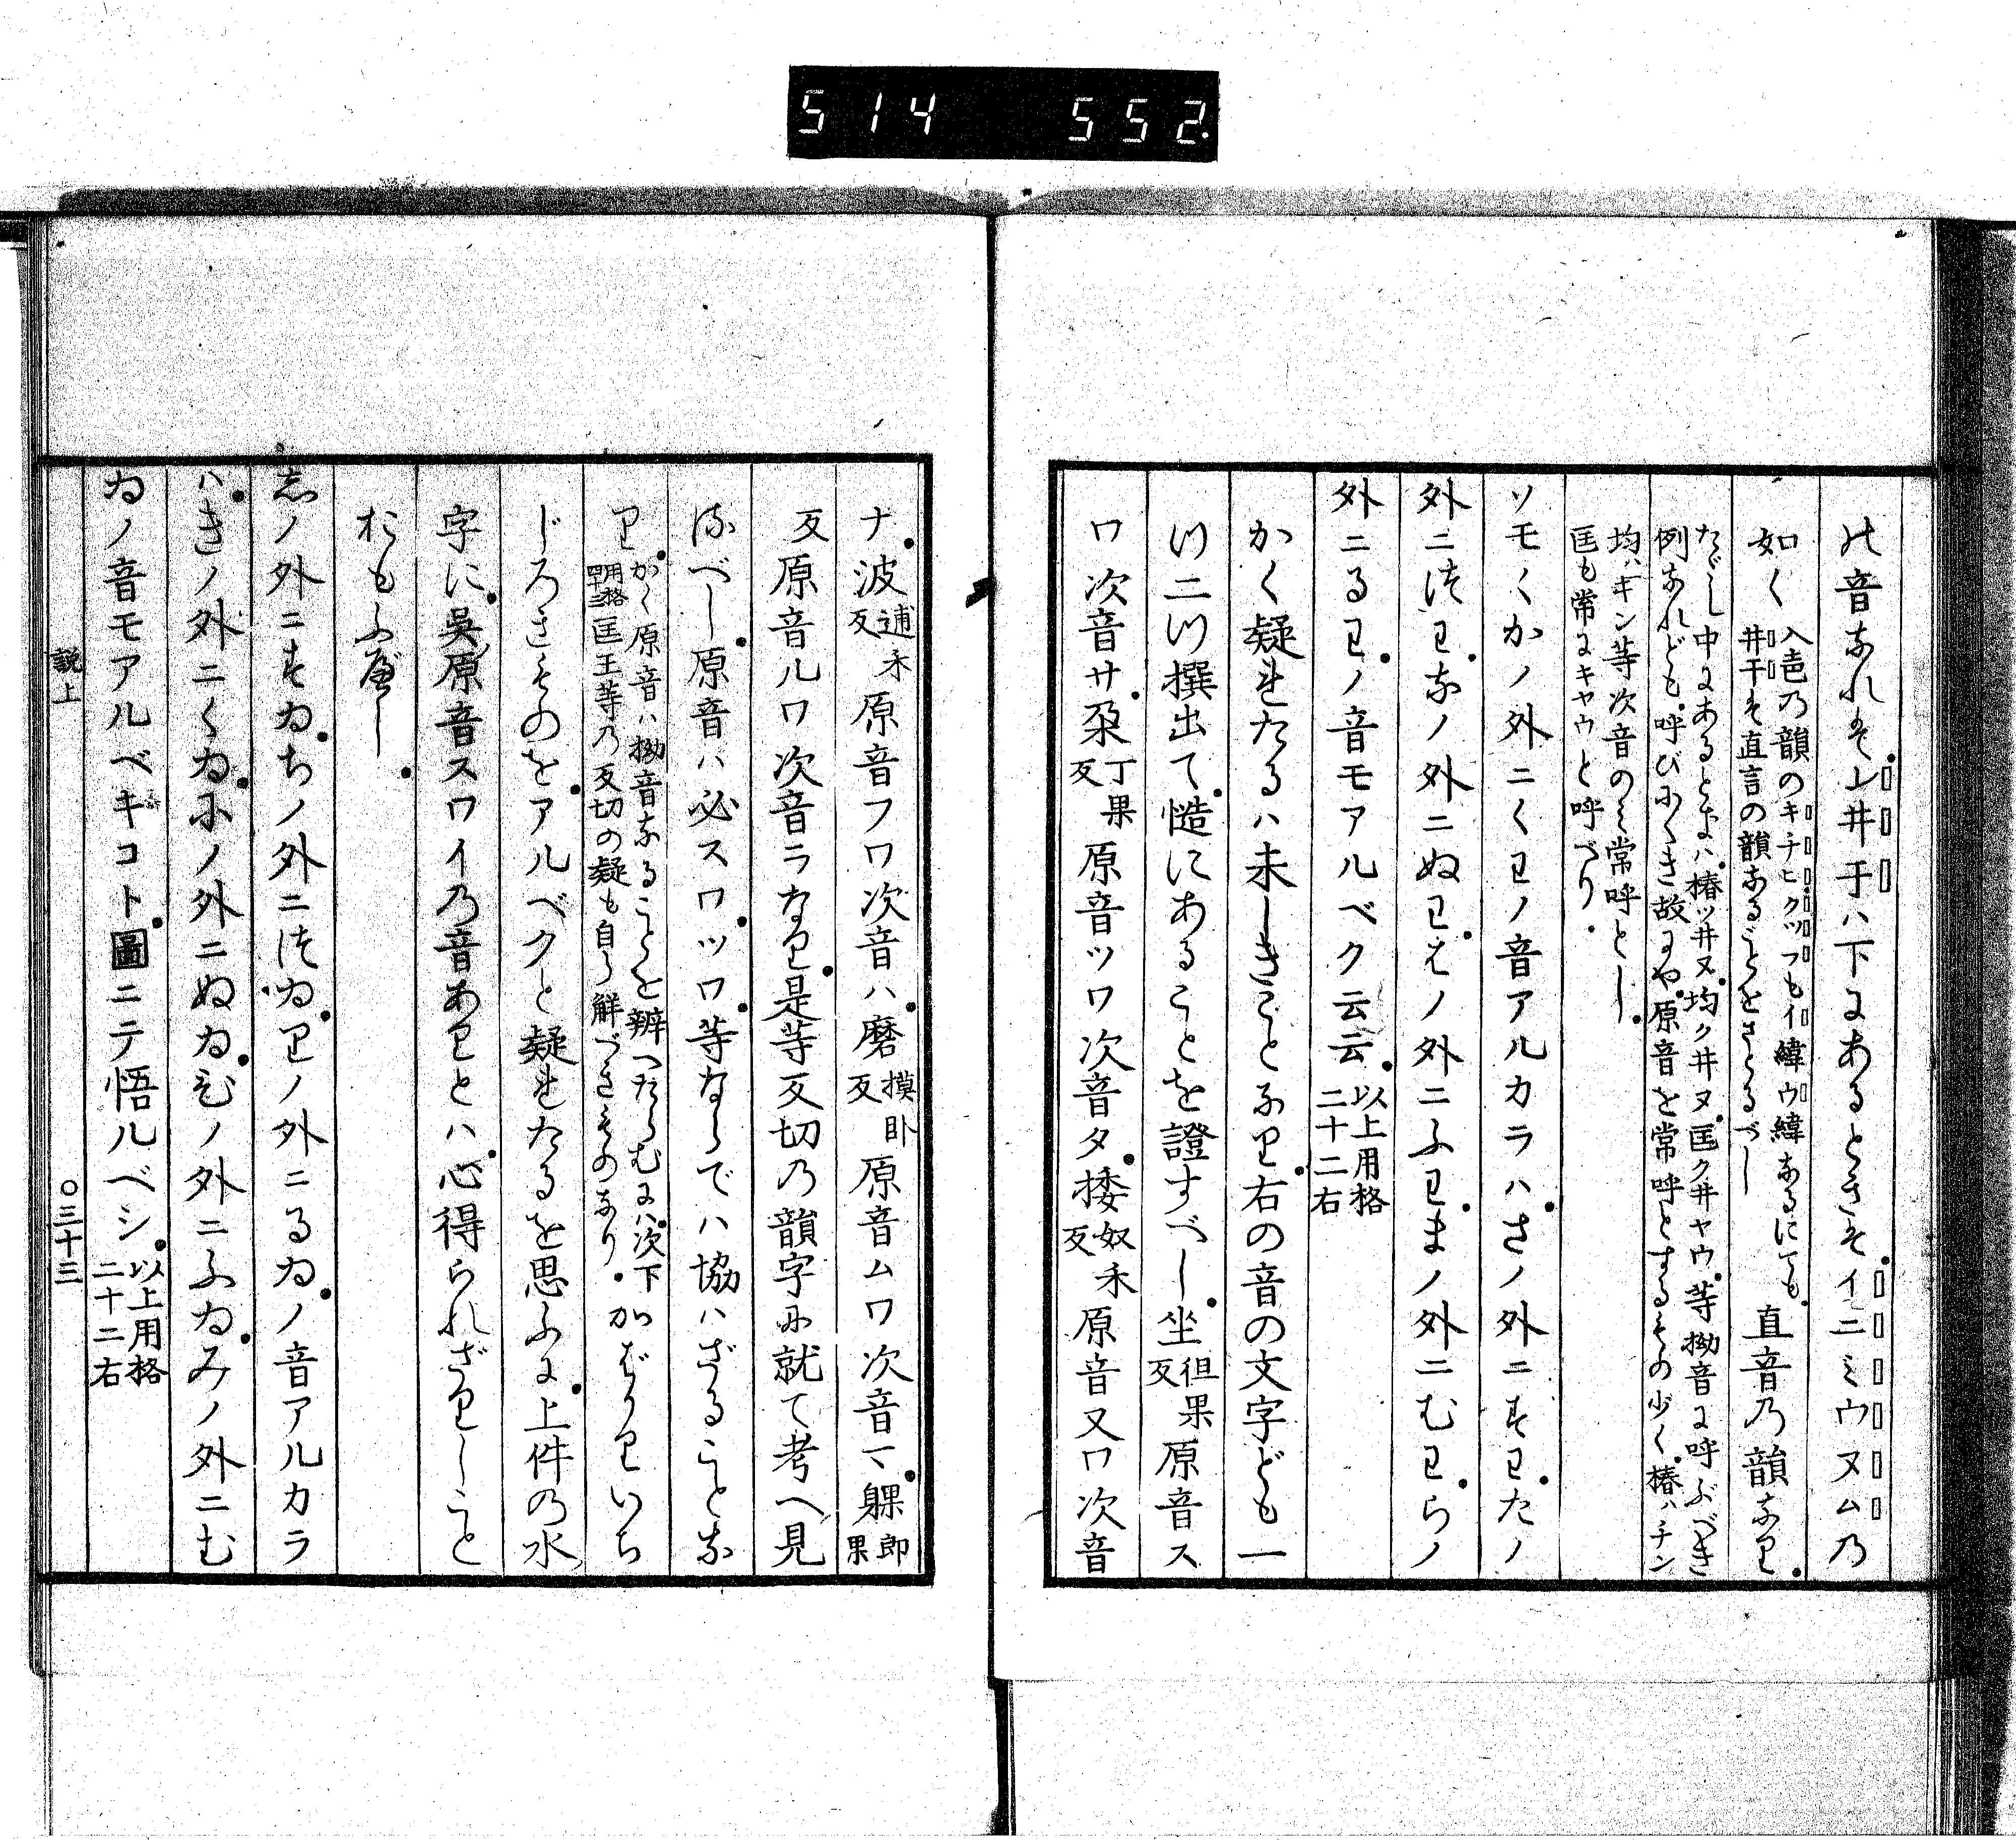 514 552
の音なれど。レ井于ハ下にあるときそ。イニミウヌムの
如く入声の韻のキチヒクツフもイ緯ウ緯なるにても。
井干そ直言の韻なることをさとるべし
直音乃韻なり。
たゞし中にあるときハ。椿ツ井ヌ。均ク井ヌ。匡ク井ヤウ。等拗音に呼ぶべき
例なれども。呼びにくき故にや。原音を常呼とするもの少く。椿ハチン
均ハキン等次音のミ常呼とし。
匡も常にキヤウと呼べり。
ソモくかノ外ニくわノ音アルカラハ。さノ外ニすわ。たノ
外ニつわ。なノ外ニぬわ。はノ外ニふわ。まノ外ニむわ。らノ
外ニるわ。ノ音モアルベク云云。以上用格
二十二右
かく疑れたるハ未しきことなり。右の音の文字ども一
ツ二ツ撰出て。慥にあることを證すべし。坐徂果
反原音ス
ワ次音サ。朶丁果
反原音ツワ次音タ。捼奴禾
反原音ヌワ次音
ナ。波逋禾
反原音フワ次音ハ。磨摸臥
反原音ムワ次音マ。躶郎
果
反原音ルワ次音ラなり。是等反切の韻字に就て考へ見
るべし。原音ハ必スワ。ツワ。等ならでハ協ハざることな
り。かく原音ハ拗音なることを辨へたらむにハ。次下
用格
四十三匡王等の反切の疑も自ら解べきものなり。かばかりいち
じろきものを。アルベクと疑れたるを思ふに。上件の水
字に。呉原音スワイの音ありとハ。心得られざりしこと
おもふべし。
志ノ外ニすゐ。ちノ外ニつゐ。りノ外ニるゐ。ノ音アルカラ
ハ。きノ外ニくゐ。にノ外ニぬゐ。ひノ外ニふゐ。みノ外ニむ
ゐノ音モアルベキコト。圖ニテ悟ルベシ。以上用格
二十二右
説上
○三十三